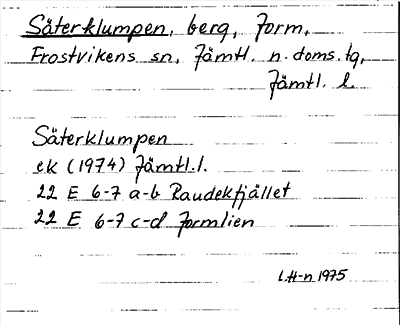 Säterklumpen, berg, Form,
Frostvikens sn, Jämtl. n. doms. tg,
Jämtl. l.
Säterklumpen
ek (1974) Jämtl.l.
22 E 6-7 a-b Raudekfjället
22 E 6-7 c-d Formlien
l.H-n 1975